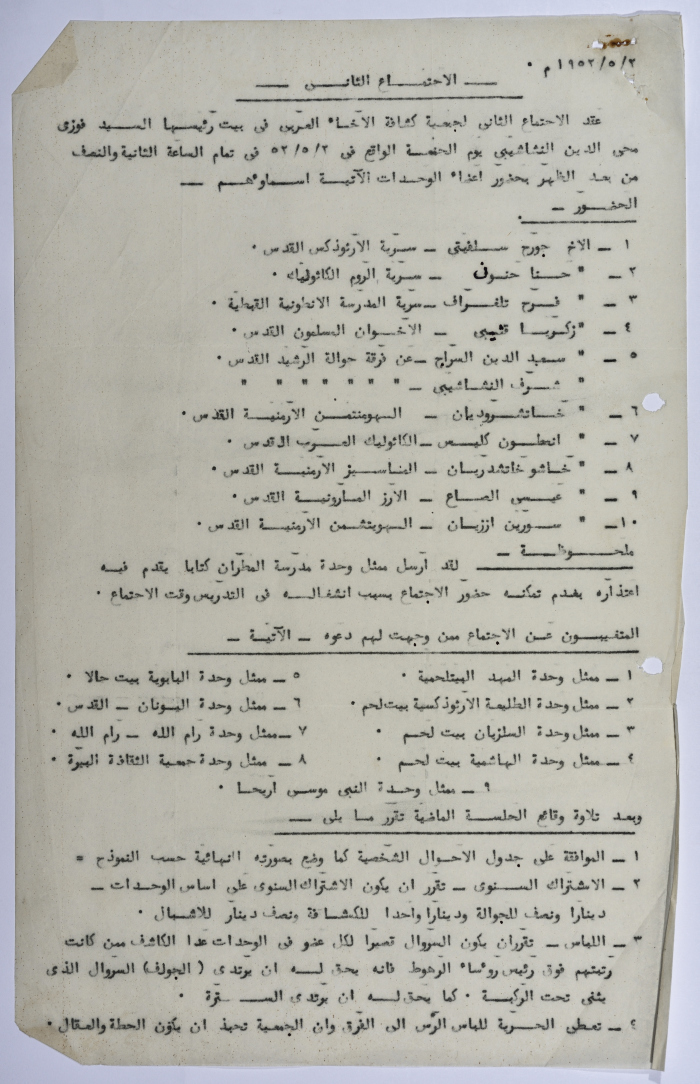 ١٩٥٢/٥/٢ م .
— الاجتماع الثاني —
عقد الاجتماع الثاني لجمعية كشافة الاخاء العربي في بيت رئيسها السيد فوزي
محي الدين النشاشيبي يوم الجمعة الواقع في ٥٢/٥/٢ في تمام الساعة الثانية والنصف
من بعد الظهر بحضور اعضاء الوحدات الآتية اسماؤهم —
الحضور —
١ — الاخ جورج سلفيتي — سرية الارثوذكس القدس .
٢ — " حنا حنوف — سرية الروم الكاثوليك .
٣ — " فرح تلغراف — سرية المدرسة الانطونية القبطية .
٤ — " زكريا قتيبي — الاخوان المسلمون القدس .
٥ — " سعيد الدين السراج — عن فرقة جوالة الرشيد القدس .
" شرف النشاشيبي — " " " " " "
٦ — " خاتشروديان — الهومنتمن الارمنية القدس .
٧ — " انطون كليس — الكاثوليك العرب القدس .
٨ — " خاشو خاتشدريان — الارمنية القدس .
٩ — " عيسى الصاع — الارز المارونية القدس .
١٠ — " سورين اززيان — الهويتشمن الارمنية القدس .
ملحوظة —
لقد ارسل ممثل وحدة مدرسة المطران كتابا يقدم فيه
اعتذاره بعدم تمكنه حضور الاجتماع بسبب انشغاله في التدريس وقت الاجتماع .
المتغيبون عن الاجتماع ممن وجهت لهم دعوه — الآتية —
١ — ممثل وحدة المهد البيتلحمية .
٥ — ممثل وحدة البابوية بيت جالا .
٢ — ممثل وحدة الطليعة الارثوذكسية بيت لحم .
٦ — ممثل وحدة اليونان — القدس .
٣ — ممثل وحدة السلزيان بيت لحم .
٧ — ممثل وحدة رام الله — رام الله .
٤ — ممثل وحدة الهاشمية بيت لحم .
٨ — ممثل وحدة جمعية الثقافة البيرة .
٩ — ممثل وحدة النبي موسى اريحا .
وبعد تلاوة وقائع الجلسة الماضية تقرر ما يلي —
١ — الموافقة على جدول الاحوال الشخصية كما وضع بصورته النهائية حسب النموذج =
٢ — الاشتراك السنوي — تقرر ان يكون الاشتراك السنوي على اساس الوحدات —
دينارا ونصف للجوالة ودينارا واحدا للكشافة ونصف دينار للاشبال .
٣ — اللباس — تقرران يكون السروال قصيرا لكل عضو في الوحدات عدا الكاشف ممن كانت
رتبتهم فوق رئيس رؤساء الرهوط فانه يحق له ان يرتدي ( الجولف) السروال الذي
يثنى تحت الركبة . كما يحق له ان يرتدي السترة .
٤ — تعطى الحرية للباس الرأس الى الفرق وان الجمعية تحبذ ان يكون الحطة والعقال .